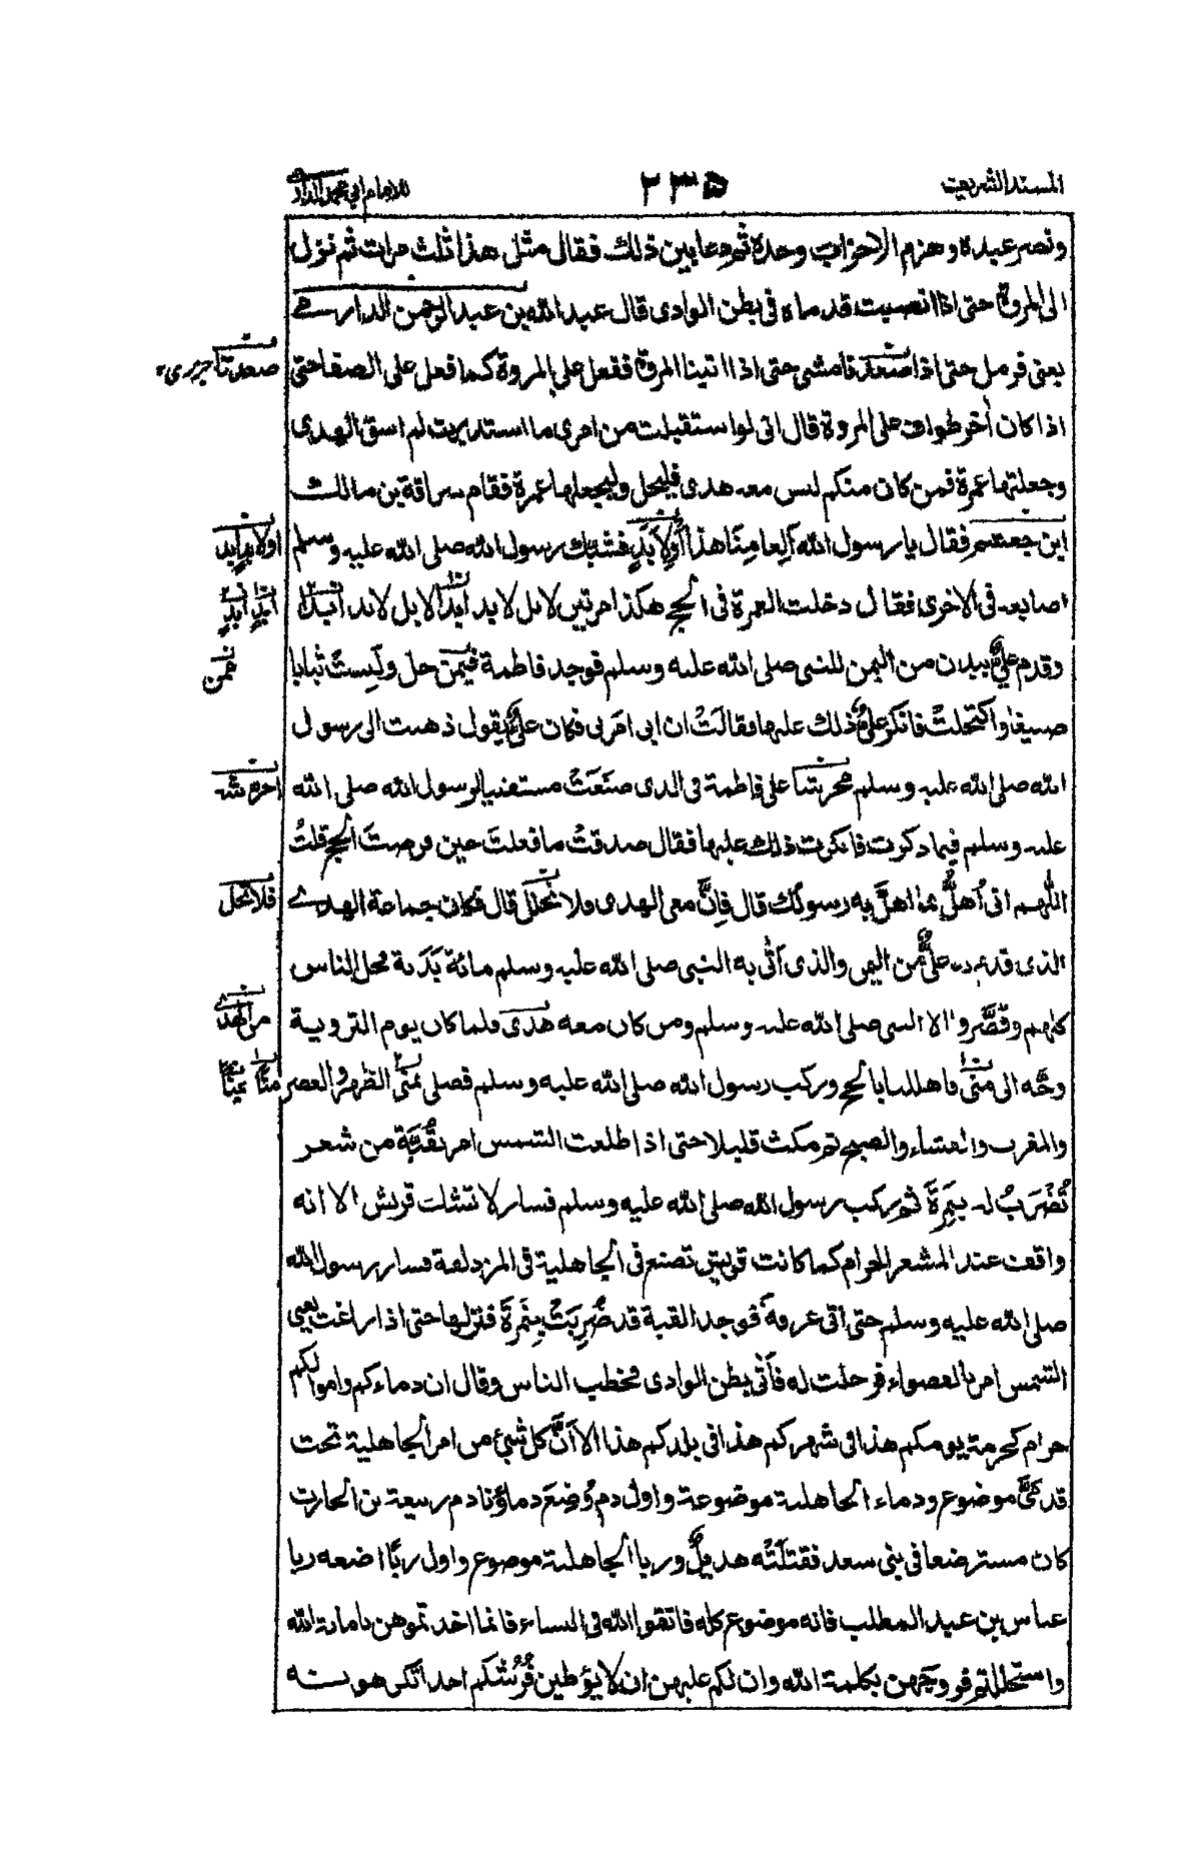 المسند الشريف ٢٣٥ للامام ابي محمد الدارمي
ونصر عبده وهزم الاحزاب وحده ثم دعا بين ذلك فقال مثل هذا ثلث مرات ثم نزل
الى المروة حتى اذا انصبت قدماه فى بطن الوادى قال عبد الله بن عبد الرحمن الدارمى
يعنى فرمل حتى اذا صعد فامشى حتى اذا اتينا المروة ففعل على المروة كما فعل على الصفا حتى
صعدتا
اذا كان أخر طواف على المروة قال انى لو استقبلت من امرى ما استدبرت لم اسق الهدى
وجعلتها عمرة فمن كان منكم ليس معه هدى فليحل وليجعلها عمرة فقام سراقة بن مالك
ابن جعشم فقال يا رسول الله ألِعامِنا هذا أو لِأبَدٍ فشبك رسول الله صلى الله عليه وسلم
او لابد ابد
اصابعه فى الاخرى فقال دخلت العمرة فى الحج هكذا مرتين لا بل لابد ابدا لا بل لابد ابدا
ابدٍ ابدٍ
وقدم علىٌّ ببدن من اليمن للنبى صلى الله عليه وسلم فوجد فاطمة فيمن حل ولَبِسَتْ ثيابا
ممن
صبيغا واكتحلتْ فانكر علىٌّ ذلك عليها فقالَتْ ان ابى امرنى فكان علىٌّ يقول ذهبت الى رسول
الله صلى الله عليه وسلم محرشا على فاطمة فى الذى صنَعَتْ مستفتيا لرسول الله صلى الله
عليه وسلم فيما ذكرت فانكرت ذلك عليها فقال صدقتْ ما فعلتَ حين فرضتَ الحج قلتُ
اللّٰهم انى اُهلُّ بما اهلَّ به رسولك قال فاِنَّ معى الهدى فلا تحلل قال فكان جماعة الهدى
فلا تحل
الذى قدم به علىٌّ من اليمن والذى اَتٰى به النبى صلى الله عليه وسلم مائة بَدَنة فحل الناس
كلهم وقَصَّروا الا النبى صلى الله عليه وسلم ومن كان معه هدى فلما كان يوم التروية
من الهدى
وجَّه الى منًى فاهللنا بالحج وركب رسول الله صلى الله عليه وسلم فصلى بمنًى الظهر والعصر
والمغرب والعشاء والصبح ثم مكث قليلا حتى اذا طلعت الشمس امر بقُبَّة من شعر
تُضْرَبُ له بنَمِرةَ ثم ركب رسول الله صلى الله عليه وسلم فسار لا تشك قريش الا انه
واقف عند المشعر الحرام كما كانت قريش تصنع فى الجاهلية فى المزدلفة فسار رسول الله
صلى الله عليه وسلم حتى أتى عرفة فوجد القبة قد ضُرِبَتْ بنَمِرةَ فنزلها حتى اذا زاغت يعنى
الشمس امر بالقصواء فرحلت له فأَتٰى بطن الوادى فخطب الناس وقال ان دماءكم واموالكم
حرام كحرمة يومكم هذا فى شهركم هذا فى بلدكم هذا الا اَنَّ كل شئ من امر الجاهلية تحت
قدمىَّ موضوع ودماء الجاهلية موضوعة واول دم وُضِعَ دماؤنا دم ربيعة بن الحارث
كان مسترضعا فى بنى سعد فقتلَتْه هذيلٌ وربا الجاهلية موضوع واول ربًا اضعه ربا
عباس بن عبد المطلب فانه موضوع كله فاتقوا الله فى النساء فانما اخذتموهن بامانة الله
واستحللتم فروجهن بكلمة الله وان لكم عليهن ان لا يؤطين فُرُشكم احدا تكرهونه